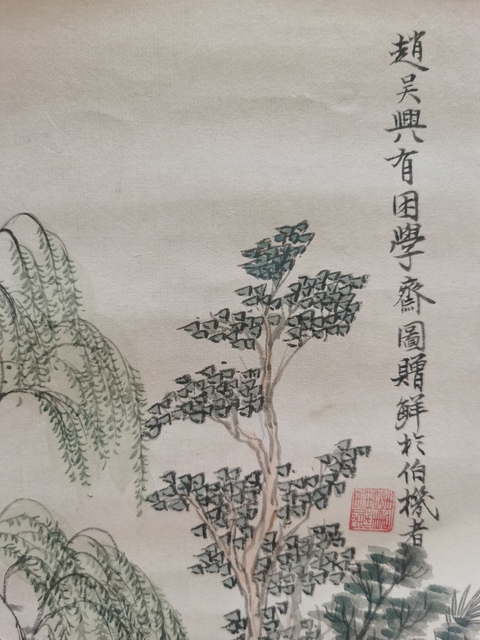 趙吳興有困學齋圖贈鮮於伯機者